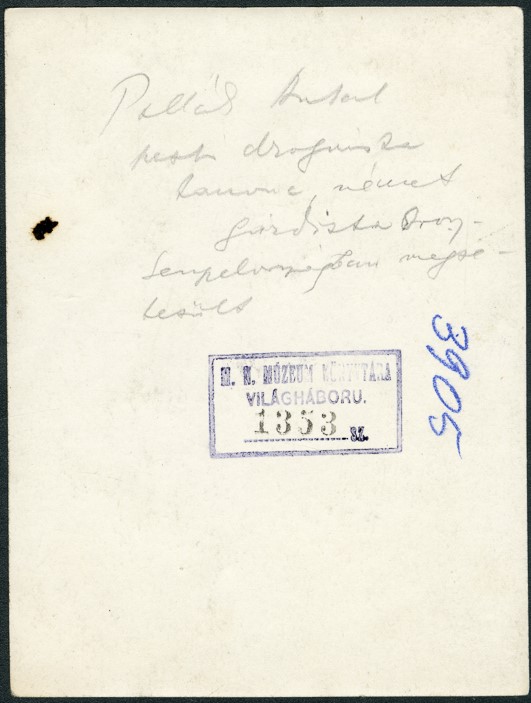 Pollák Antal
pesti droguista
tanonc, német
gárdista Orosz-
Lengyelországban megse-
besült
M. N. MÚZEUM KÖNYVTÁRA
VILÁGHÁBORU.
1353 SZ.
3905